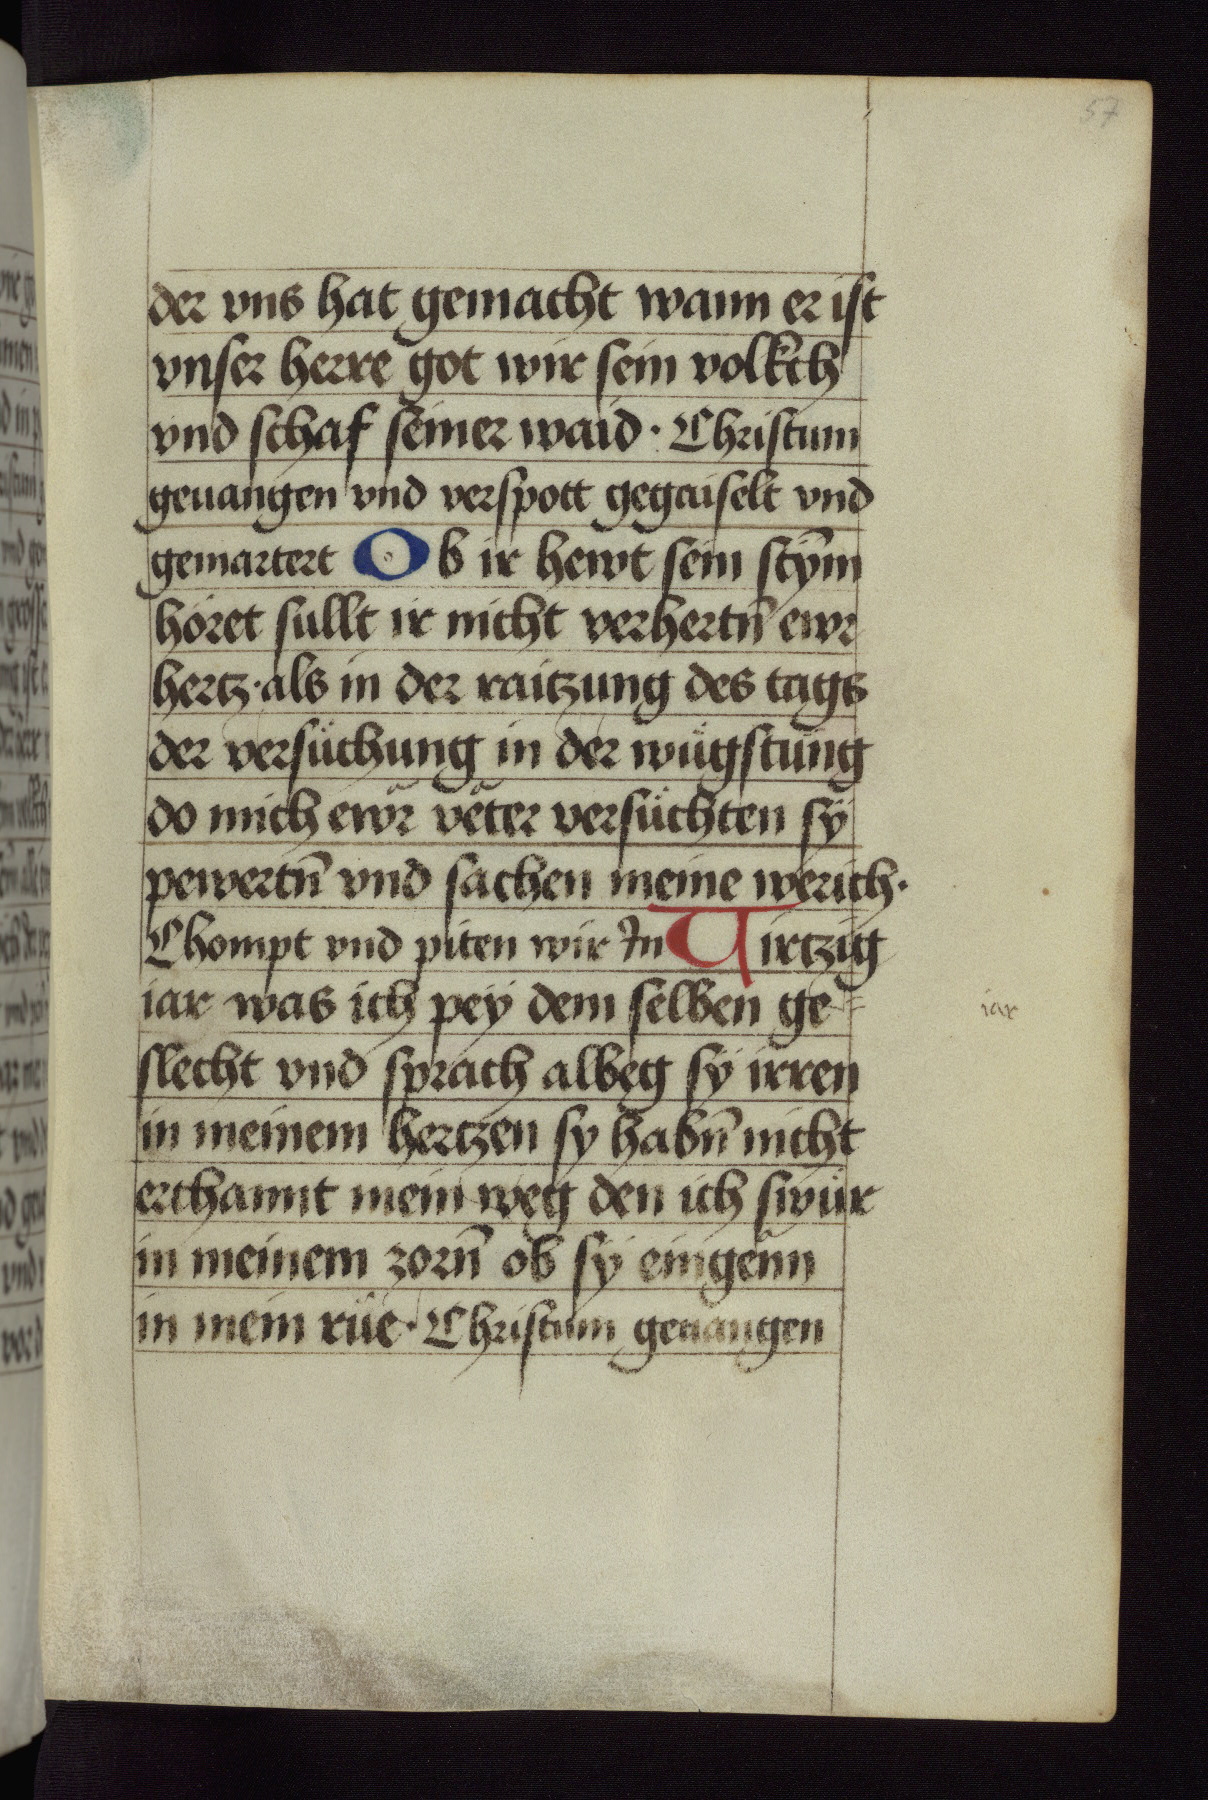 57
der vns hat gemacht wann er ist
vnser herre got wir sein volkch
vnd schaf seiner waid · Christum
geuangen vnd verspott gegaiselt vnd
gemartert Ob ir hewt sein stÿm̄
höret sullt ir nicht verhertn̄ ewr
hertz · als in der raitzung des tags
der versüchung in der wügstung
do mich ewr̄ veter versüchten sÿ
pewertn̄ vnd sachen meine werich ·
Chompt vnd piten wir Jn Virtzig
iar was ich pey dem selben ge=
iar
slecht vnd sprach albeg sÿ irren
in meinem hertzen sy habn̄ nicht
erchannt mein weg den ich swür
in meinem zorn̄ ob sÿ eingenn
in mein rüe · Christum geuangen